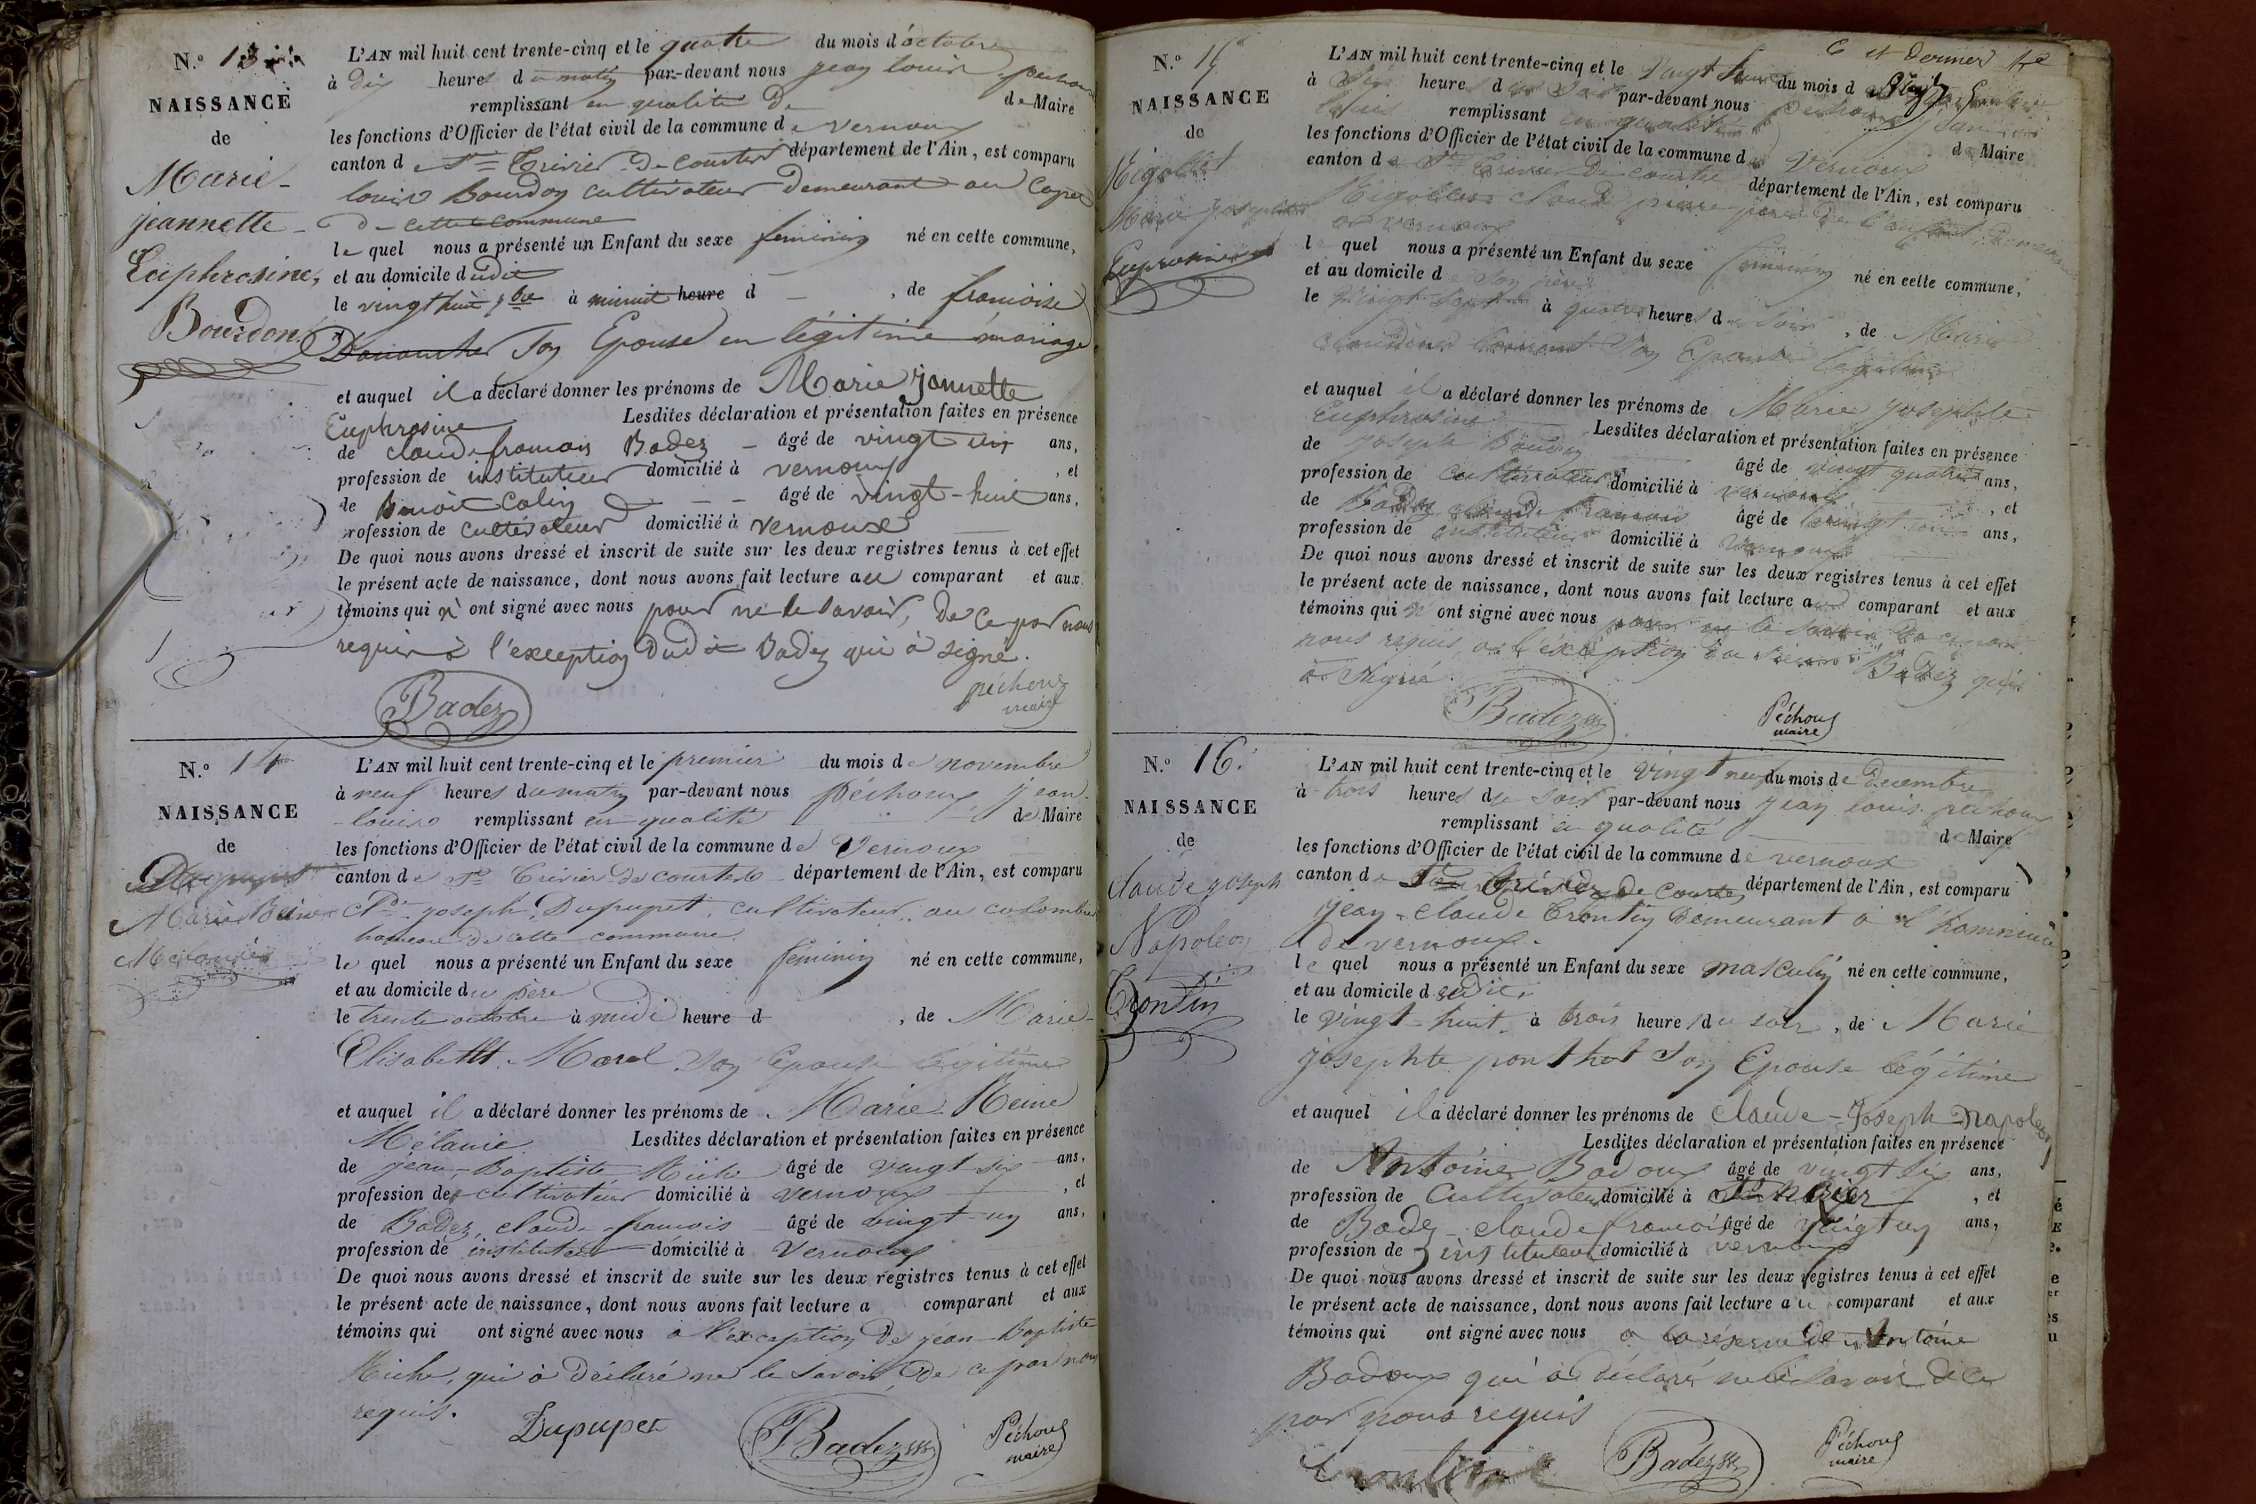 N.º 13
NAISSANCE
de
Marie-
jeannette-
Euphrosine,
Bourdon
L'AN mil huit cent trente-cinq et le quatre du mois d'octobre
à dix heures du matin par-devant nous jean louis péchoux
remplissant en qualité de Maire
les fonctions d'Officier de l'état civil de la commune de vernoux
canton de St Trivier de courtes département de l'Ain, est comparu
louis Bourdon cultivateur demeurant au
de cette commune
le quel nous a présenté un Enfant du sexe feminin né en cette commune,
et au domicile dudit
le vingt huit 7bre à minuit heure d , de francoise
son Epouse en légitime mariage
et auquel il a déclaré donner les prénoms de Marie jannette
Euphrosine Lesdites déclaration et présentation faites en présence
de claude francois Badez âgé de vingt un ans,
profession de instituteur domicilié à vernoux , et
de Benoit Colin âgé de vingt-huit ans,
profession de cultivateur domicilié à vernoux
De quoi nous avons dressé et inscrit de suite sur les deux registres tenus à cet effet
le présent acte de naissance, dont nous avons fait lecture au comparant et aux
témoins qui n' ont signé avec nous pour ne le savoir, de ce par nous
requis à l'exception dudit Badez qui à signé.
Badez
péchoux
maire
N.º 14
NAISSANCE
de
Dupupet
Marie Reine
Mélanie
L'AN mil huit cent trente-cinq et le premier du mois de novembre
à neuf heures du matin par-devant nous péchoux jean
louis remplissant en qualité de Maire
les fonctions d'Officier de l'état civil de la commune de Vernoux
canton de St Trivier de courtes département de l'Ain, est comparu
joseph Dupupet, cultivateur au colombier
hameau de cette commune
le quel nous a présenté un Enfant du sexe féminin né en cette commune,
et au domicile du père
le trente octobre à midi heure d , de Marie-
Elisabeth Morel son Epouse légitime
et auquel il a déclaré donner les prénoms de Marie Reine
Mélanie Lesdites déclaration et présentation faites en présence
de jean-Baptiste Miche âgé de vingt six ans,
profession de cultivateur domicilié à vernoux , et
de Badez, claude-francois âgé de vingt-un ans,
profession de instituteur domicilié à Vernoux
De quoi nous avons dressé et inscrit de suite sur les deux registres tenus à cet effet
le présent acte de naissance, dont nous avons fait lecture a comparant et aux
témoins qui ont signé avec nous à l'exception de jean-Baptiste
Miche, qui à déclaré ne le savoir, de ce par nous
requis.
Dupupet
Badez
Péchoux
maire
N.º 15
NAISSANCE
de
Marie josephte
6 et dernier
L'AN mil huit cent trente-cinq et le vingt du mois d
à six heures du soir par-devant nous péchoux jean
louis remplissant en qualité de Maire
les fonctions d'Officier de l'état civil de la commune de Vernoux
canton de St Trivier de courtes département de l'Ain, est comparu
claude pierre père de l'enfant demeurant
à vernoux
le quel nous a présenté un Enfant du sexe feminin né en cette commune,
et au domicile de son père
le vingt sept à quatre heures du soir , de Marie
claudine son Epouse légitime
et auquel il a déclaré donner les prénoms de Marie josephte
Euphrosine Lesdites déclaration et présentation faites en présence
de joseph âgé de vingt quatre ans,
profession de cultivateur domicilié à vernoux , et
de Badez claude francois âgé de vingt un ans,
profession de instituteur domicilié à vernoux
De quoi nous avons dressé et inscrit de suite sur les deux registres tenus à cet effet
le présent acte de naissance, dont nous avons fait lecture au comparant et aux
témoins qui n' ont signé avec nous pour ne le savoir de ce par
nous requis, à l'exception du sieur Badez qui
à signé
Badez
Péchoux
maire
N.º 16.
NAISSANCE
de
claude joseph
Napoleon
Trontin
L'AN mil huit cent trente-cinq et le vingt neuf du mois de decembre
à trois heures de soir par-devant nous jean louis péchoux
remplissant en qualité de Maire
les fonctions d'Officier de l'état civil de la commune de vernoux
canton de St Trivier de courtes département de l'Ain, est comparu
jean-claude Trontin demeurant à
de vernoux.
le quel nous a présenté un Enfant du sexe masculin né en cette commune,
et au domicile dudit
le vingt-huit à trois heures du soir , de Marie
josephte ponthot son Epouse légitime
et auquel il a déclaré donner les prénoms de claude-joseph napoleon
Lesdites déclaration et présentation faites en présence
de Antoine Badoux âgé de vingt six ans,
profession de cultivateur domicilié à , et
de Badez claude francois âgé de vingt un ans,
profession de instituteur domicilié à vernoux
De quoi nous avons dressé et inscrit de suite sur les deux registres tenus à cet effet
le présent acte de naissance, dont nous avons fait lecture au comparant et aux
témoins qui ont signé avec nous à la réserve de Antoine
Badoux qui à déclaré ne le savoir de ce
par nous requis
Badez
Péchoux
maire